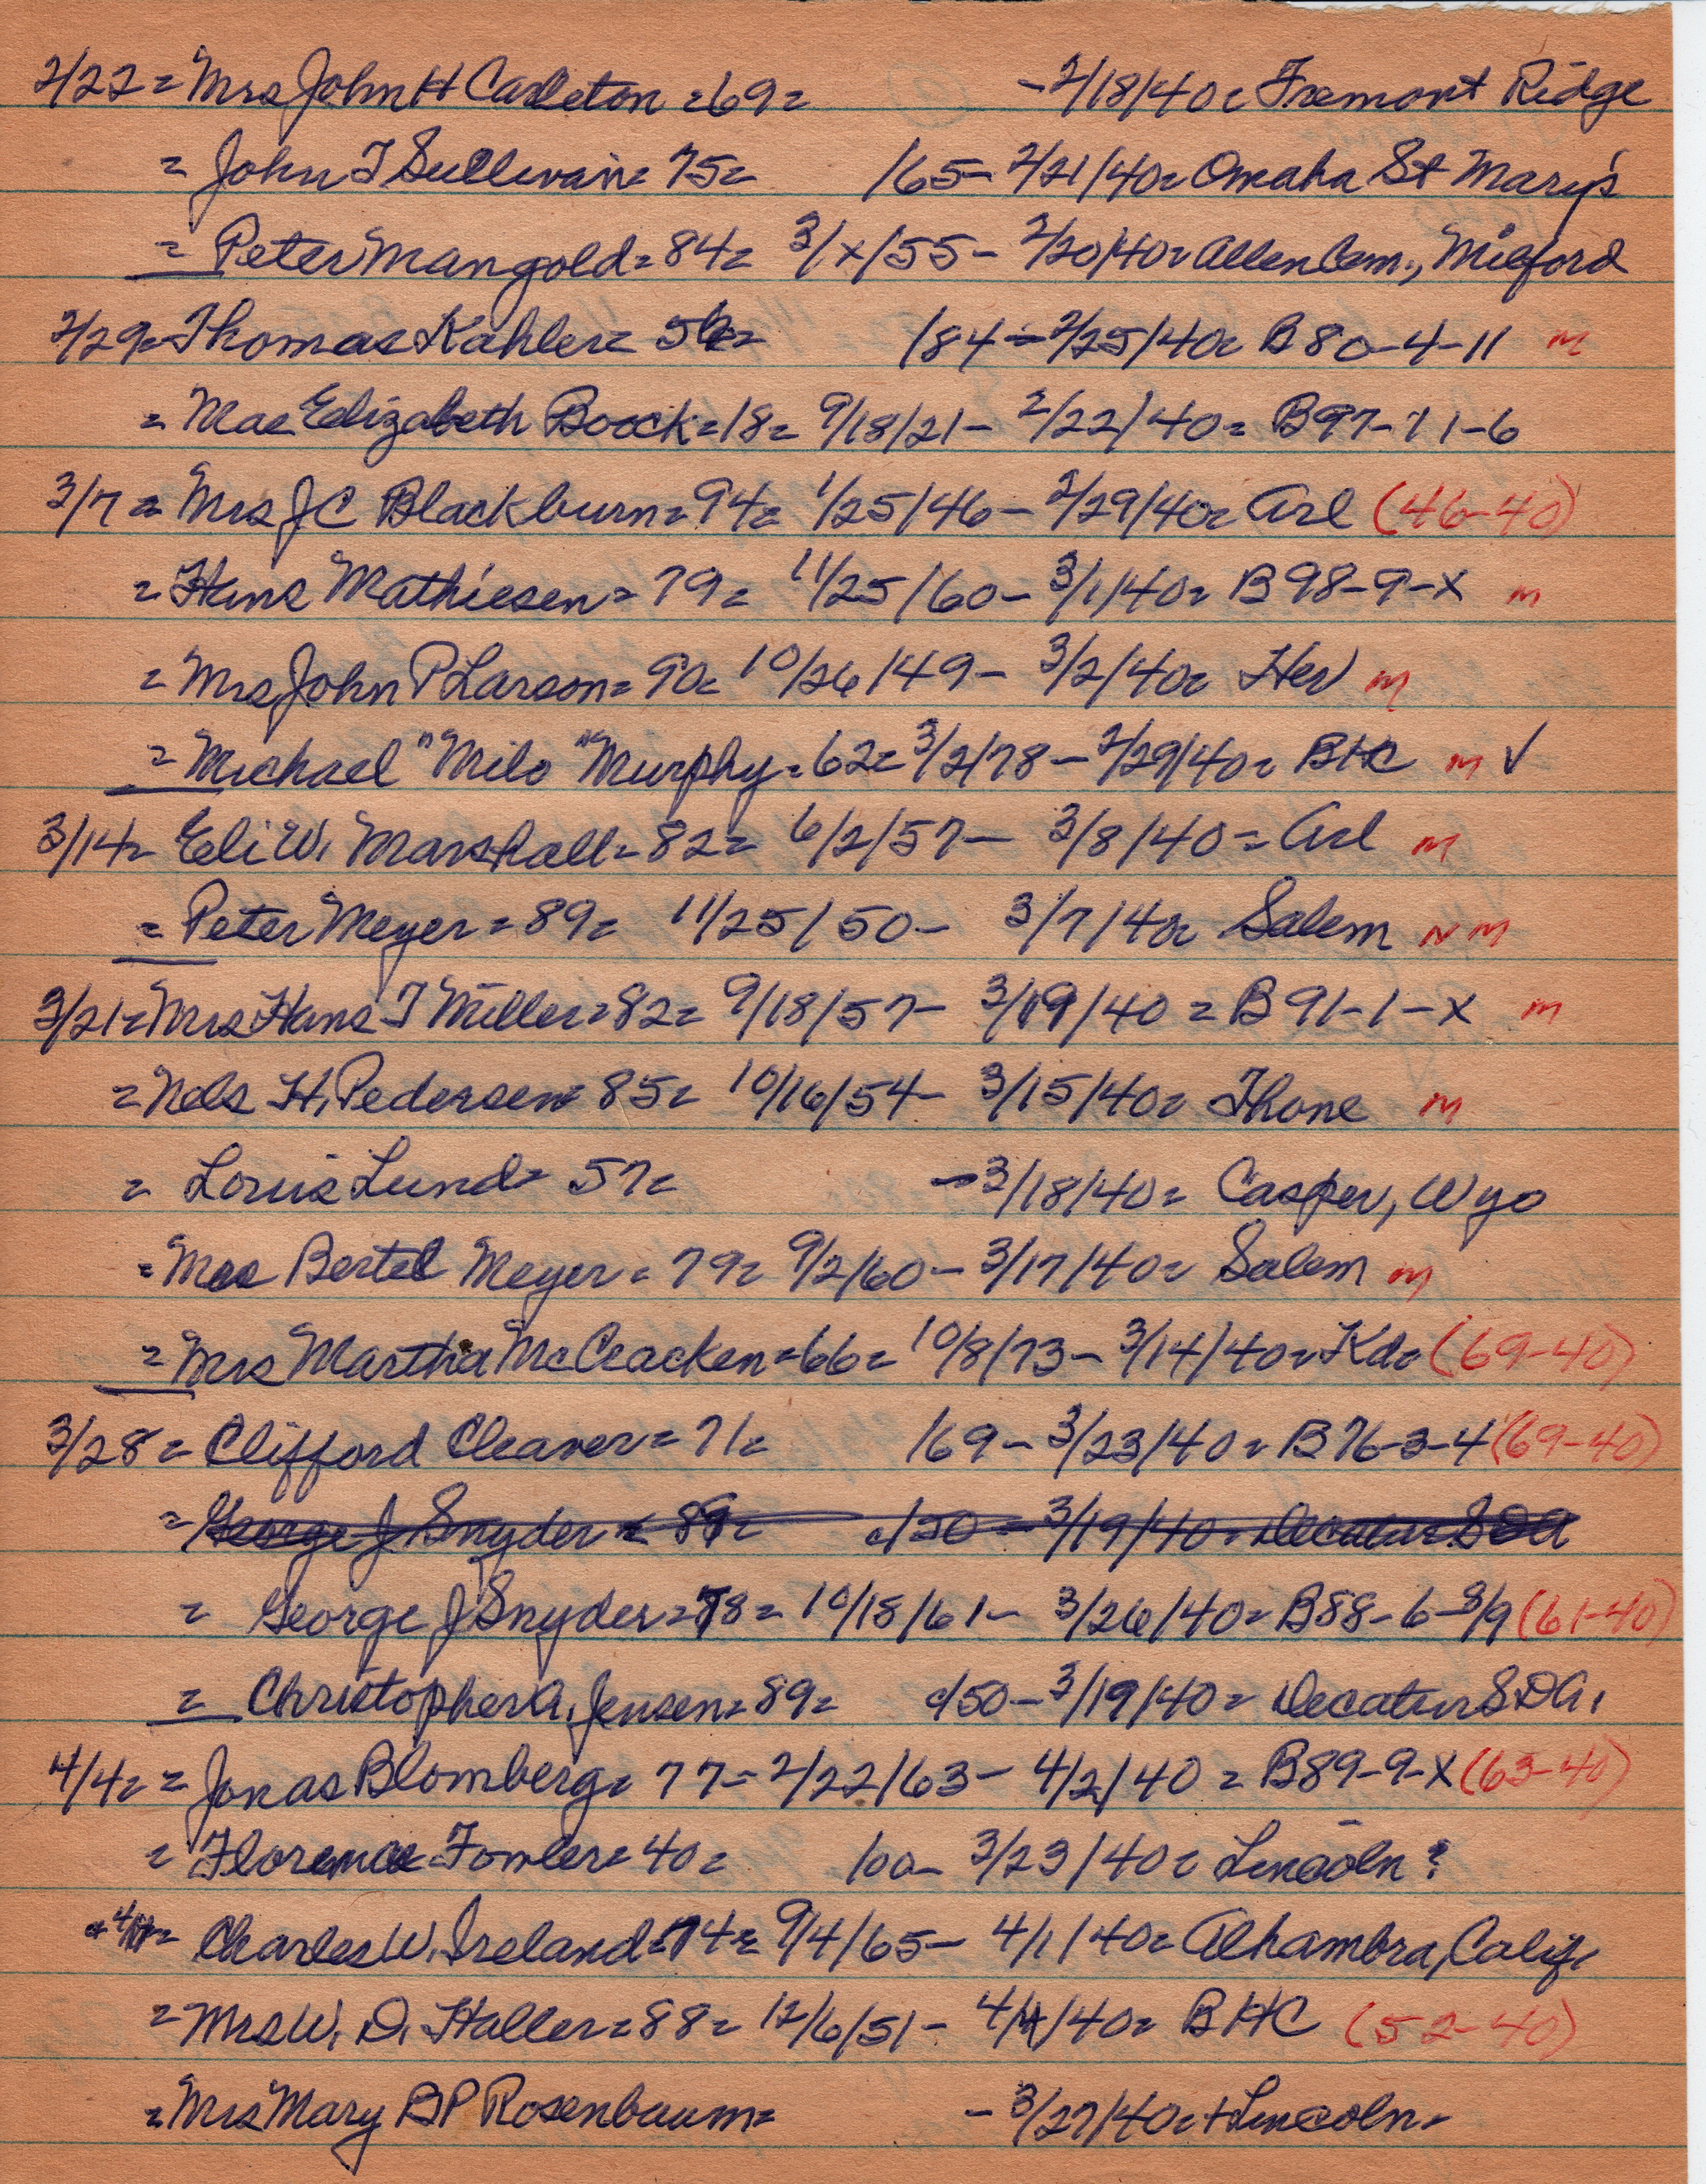 2/22 = Mrs John H Carleton = 69 = - 2/18/40 = Fremont Ridge
= John T Sullivan = 75 = /65 - 2/21/40 = Omaha St Mary's
= Peter Mangold = 84 = 3/x/55 - 2/20/40 = Allen Cem., Milford
2/29 = Thomas Kahler = /84 - 2/25/40 = B 80-4-11 m
= Mae Elizabeth Boock = 18 = 9/18/21 - 2/22/40 = B97-11-6
3/7 = Mrs J C Blackburn = 94 = 1/25/46 - 2/29/40 = Arl (46-40)
= Hans Mathiesen = 79 = 11/25/60 - 3/1/40 = B 98-9-x m
= Mrs John P Larson = 90 = 10/26/49 - 3/2/40 = Her m
= Michael "Milo" Murphy = 62 = 3/2/78 - 2/29/40 = BHC m ✓
3/14 = Eli W. Marshall = 82 = 6/2/57 - 3/8/40 = Arl m
= Peter Meyer = 89 = 11/25/50 - 3/7/40 = Salem N M
3/21 = Mrs Hans T Miller = 82 = 9/18/57 - 3/19/40 = B 91-1-x m
= Nels H. Pedersen = 85 = 10/16/54 - 3/15/40 = Thone m
= Louis Lund = 57 = - 3/18/40 = Casper, Wyo
= Mrs Bertel Meyer = 79 = 9/2/60 - 3/17/40 = Salem m
= Mrs Martha McCracken = 66 = 10/8/73 - 3/14/40 = Kd = (69-40)
3/28 = Clifford Cleaver = 71 = /69 - 3/23/40 = B 76-3-4 (69-40)
= George J Snyder = 89 = c/50 - 3/19/40 = Decatur SDA
= George J Snyder = 78 = 10/18/61 - 3/26/40 = B88-6-3/9 (61-40)
= Christopher A. Jensen = 89 = c/50 - 3/19/40 = Decatur SDA.
4/4 = = Jonas Blomberg = 77 - 2/22/63 - 4/2/40 = B89-9-x (63-40)
= Florence Fowler = 40 = /00 - 3/23/40 = Lincoln?
= Charles W. Ireland = 74 = 9/4/65 - 4/1/40 = Alhambra, Calif.
= Mrs W. D. Haller = 88 = 12/6/51 - 4/4/40 = BHC (52-40)
= Mrs Mary BP Rosenbaum = - 3/27/40 = + Lincoln =